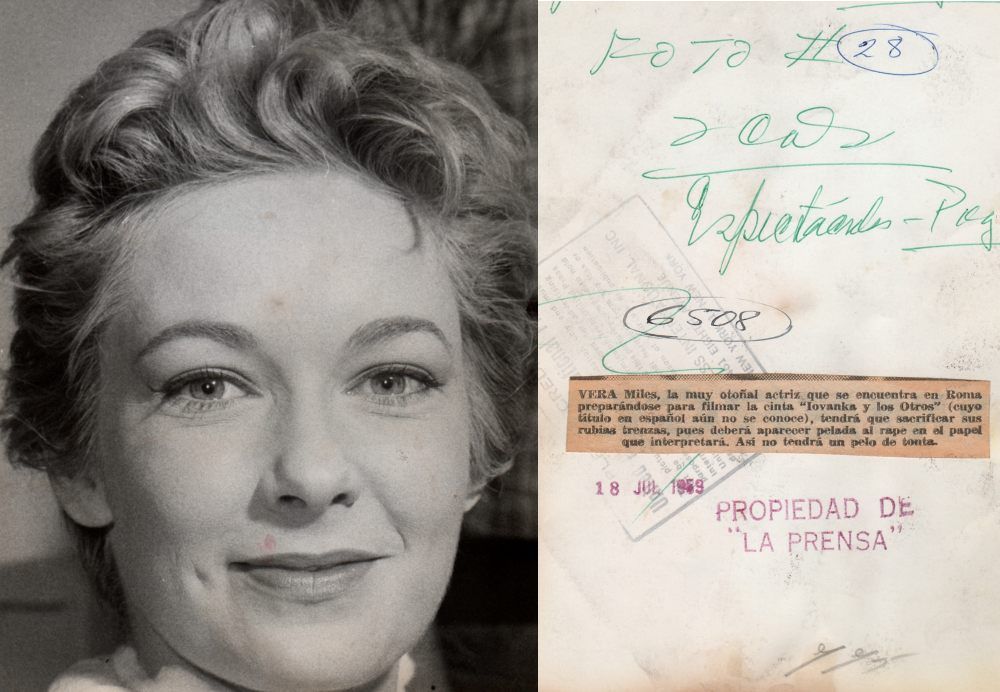 FOTO # 28
2 cols
Espectáculos - Pag
6508
VERA Miles, la muy otoñal actriz que se encuentra en Roma
preparándose para filmar la cinta "Iovanka y los Otros" (cuyo
título en español aún no se conoce), tendrá que sacrificar sus
rubias trenzas, pues deberá aparecer pelada al rape en el papel
que interpretará. Así no tendrá un pelo de tonta.
18 JUL 1959
PROPIEDAD DE
"LA PRENSA"